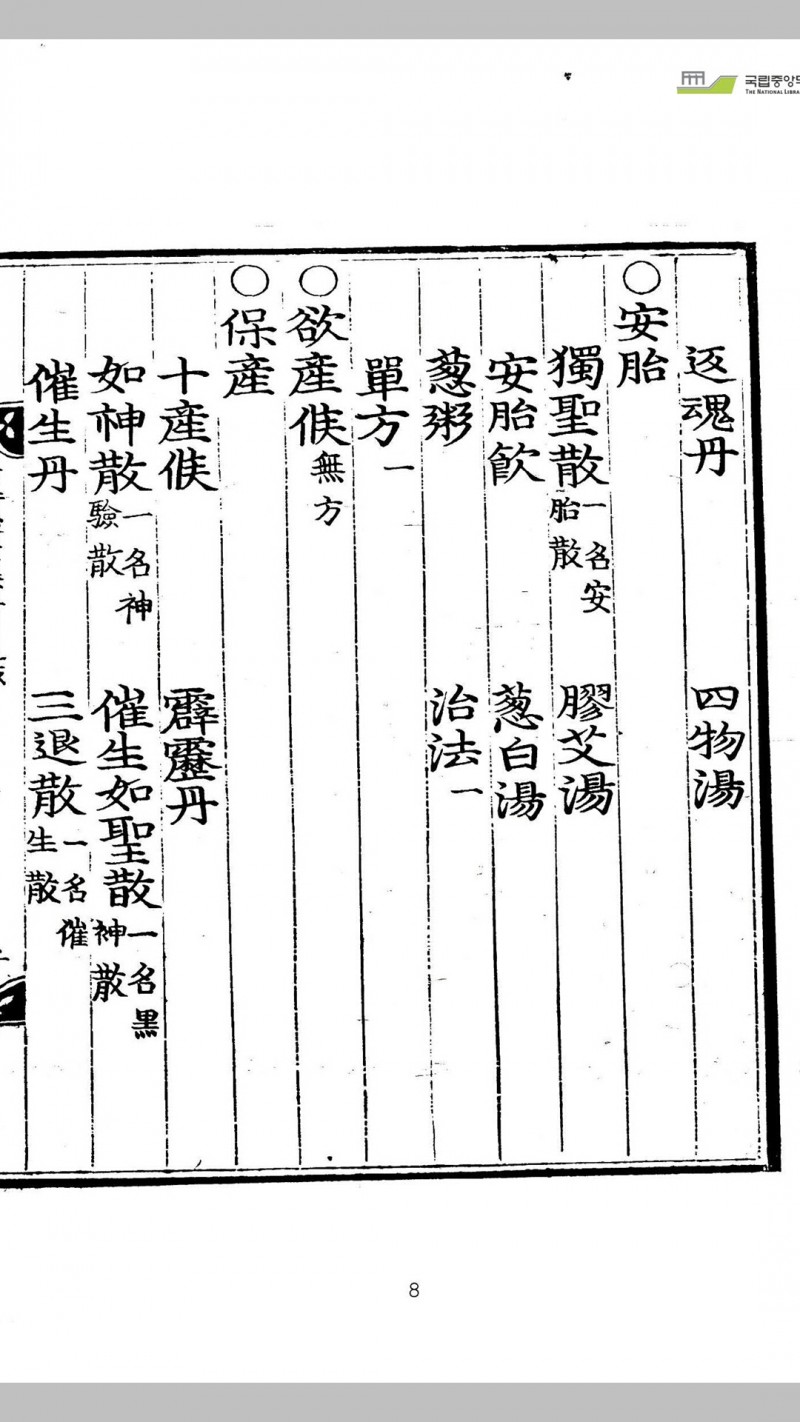 국립중앙
THE NATIONAL LIBRA
返魂丹 四物湯
○安胎
獨聖散一名安胎散 膠艾湯
安胎飮 葱白湯
葱粥 治法一
單方一
○欲産候無方
○保産
十産候 霹靂丹
如神散一名神驗散 催生如聖散一名黑神散
催生丹 三退散一名催生散
8